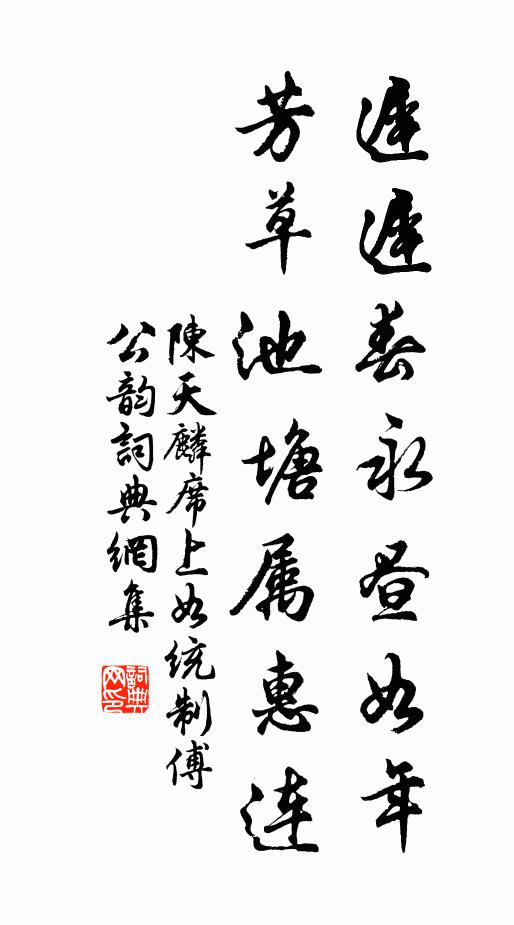 遲遲春永晝如年
芳草池塘属惠連
陳天麟席上如統制傅
公韵詞典網集
詞典網印